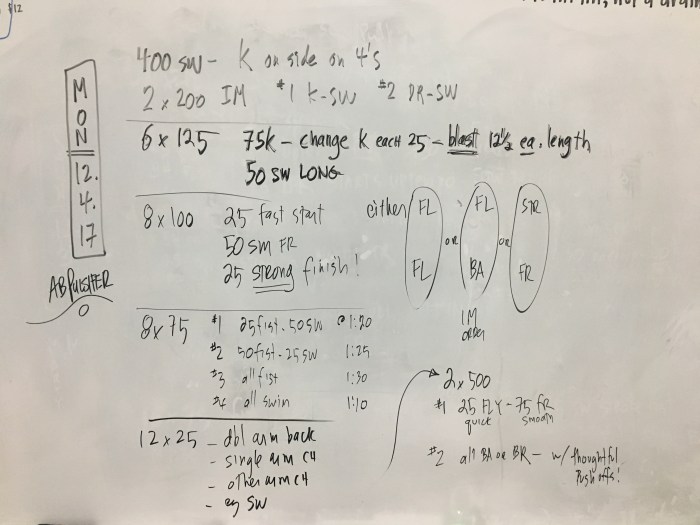 MON 12.4.17
AB PUNISHER
400 SW - K on side on 4's
2 x 200 IM #1 K-SW #2 DR-SW
6 x 125 75K - change K each 25 - blast 12½ ea. length
50 SW LONG
8 x 100 25 fast start
50 SM FR
25 strong finish!
either FL FL or FL BA or STR FR
IM
ORDER
8 x 75 #1 25 fist - 50 SW @ 1:20
#2 50 fist - 25 SW 1:25
#3 all fist 1:30
#4 all swim 1:10
12 x 25 - dbl arm back
- single arm CH
- other arm CH
- ez SW
2 x 500
#1 25 FLY - 75 FR
quick smooth
#2 alt BA or BR - w/ thoughtful
Push offs!